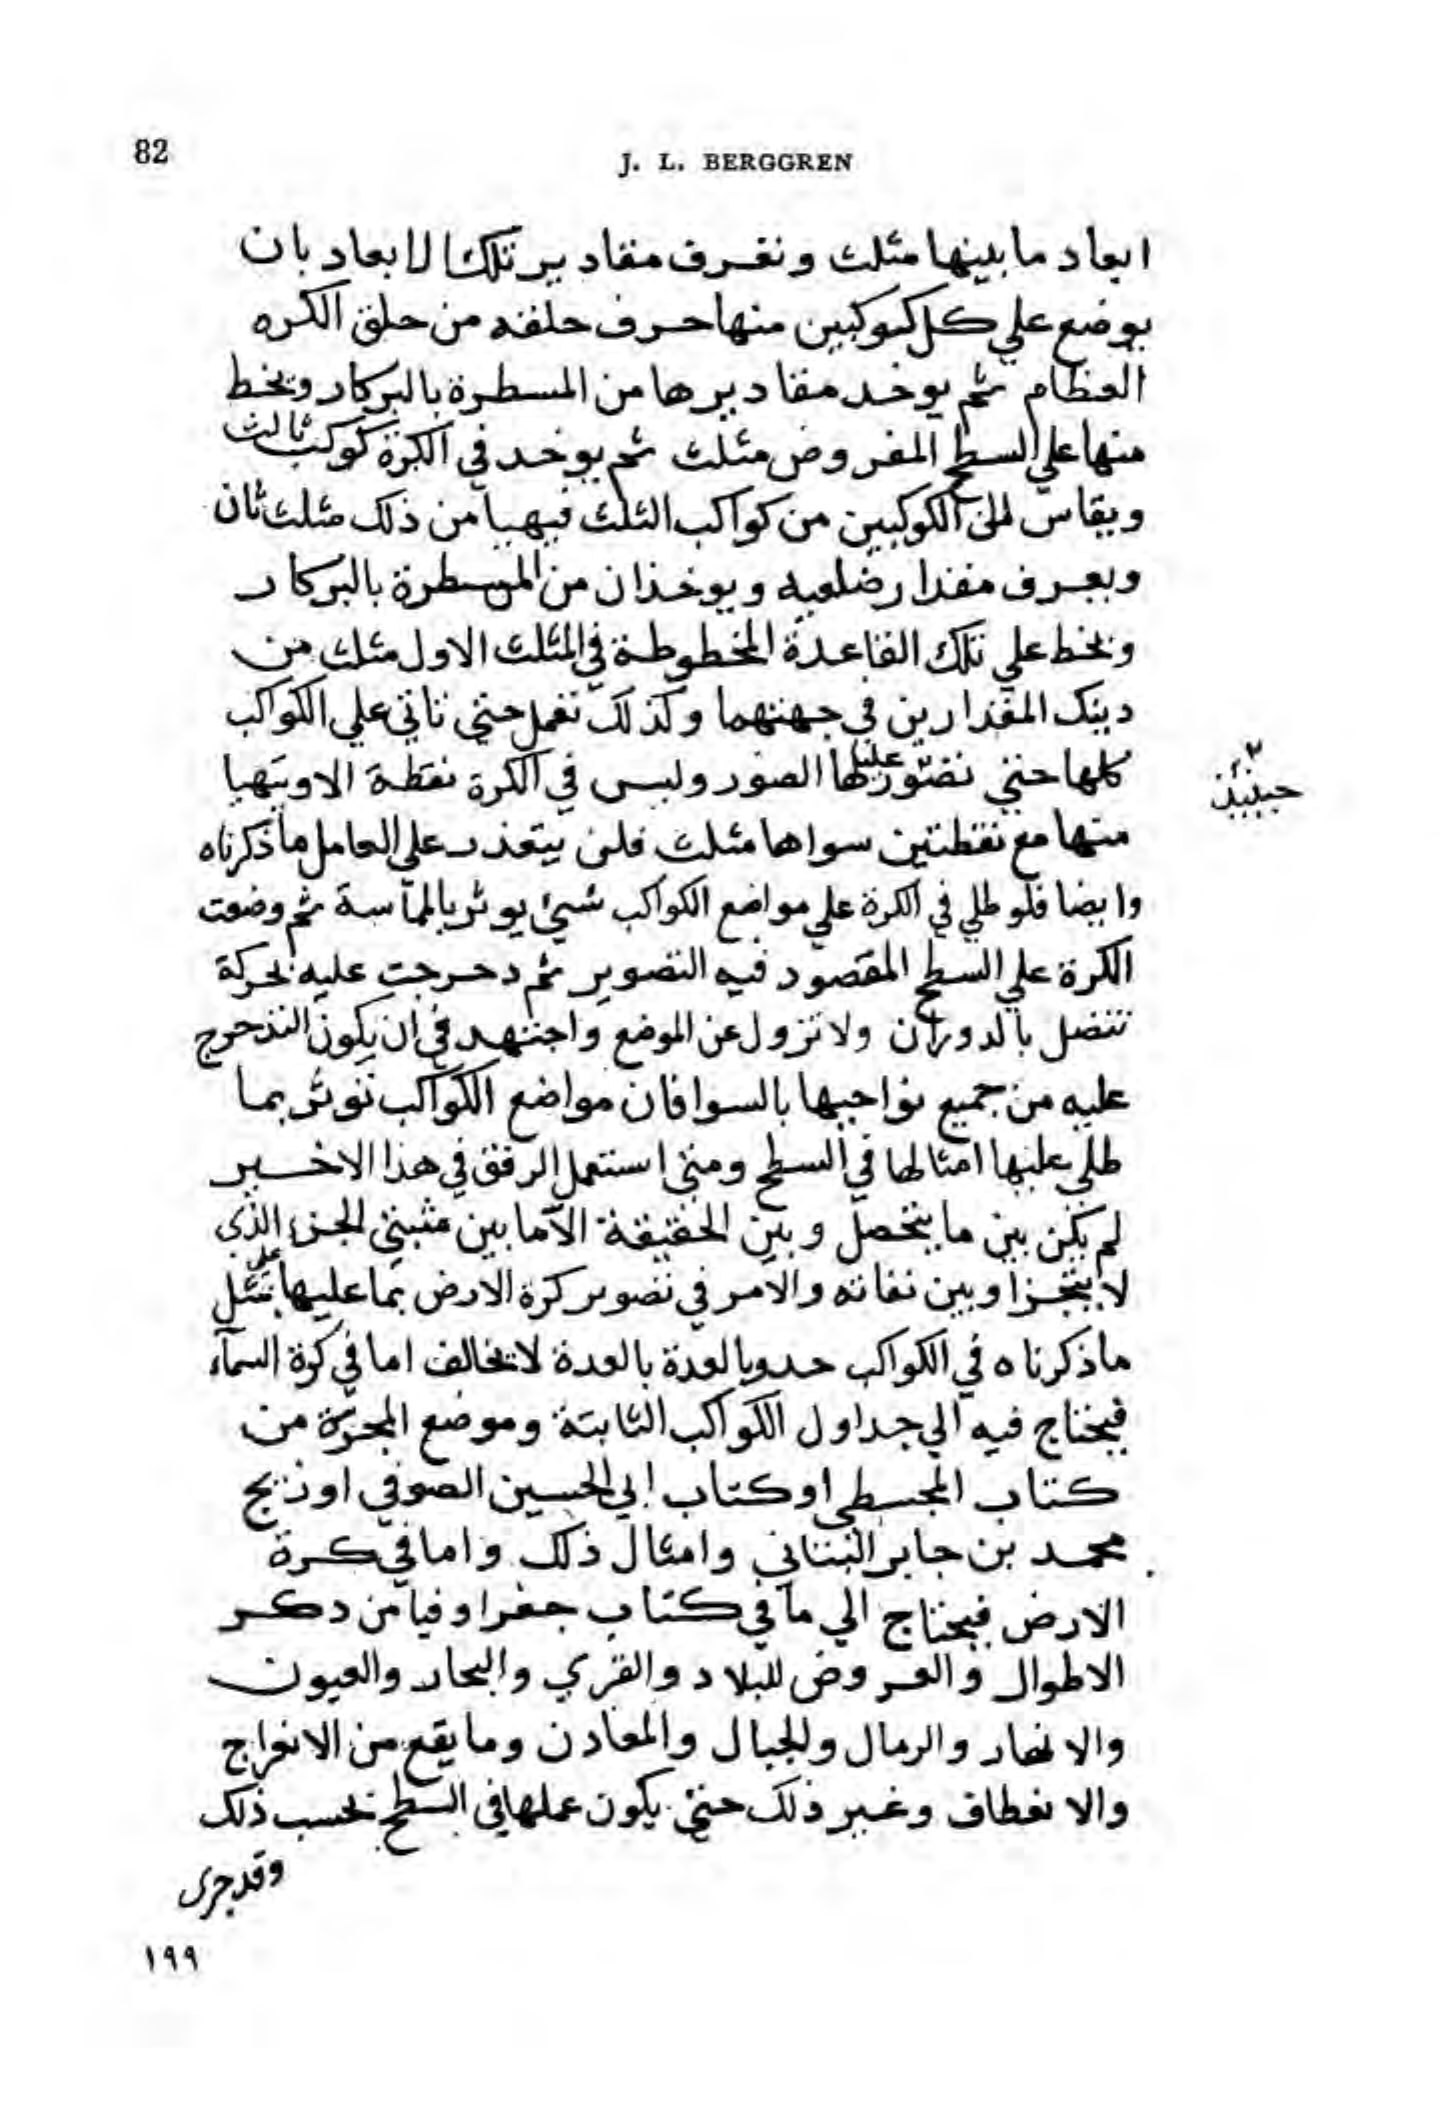 82
J. L. BERGGREN
ابعاد ما بينها مثلث ونعرف مقادير تلك الابعاد بان
يوضع علي كل كوكبين منها حرف حلقه من حلق الكره
العظام ثم يوخد مقاديرها من المسطرة بالبركار ويخط
منها علي السطح المفروض مثلث ثم يوخد في الكرة كوكب ثالث
ويقاس الكوكبين من كواكب الثلث فيهيا من ذلك مثلث ثان
ويعرف مقدار ضلعيه ويوخذان من المسطرة بالبركار
ويخط علي تلك القاعدة المخطوطة في المثلث الاول مثلث من
دينك المقدارين في جهتهما وكذلك نعمل حتي ناتي علي الكواكب
كلها حتي نصور عليها الصور وليس في الكرة نقطة الا ويتهيا
حينيذ
منها مع نقطتين سواها مثلث فلن يتعذر علي العامل ما ذكرناه
وايضا فلو طلي في الكرة علي مواضع الكواكب شيئ يوثر بالمماسة ثم وضعت
الكرة علي السطح المقصود فيه التصوير ثم دحرجت عليه بحركة
تتصل بالدوران ولا تزول عن الموضع واجتهد في ان يكون التدحرج
عليه من جميع نواحيها بالسوا فان مواضع الكواكب توثر بما
طلي عليها امثالها في السطح ومتي استعمل الرفق في هذا الاخير
لم يكن بين ما يتحصل وبين الحقيقة الا ما بين مثبتي الجزء الذي
لا يتجزا وبين نفاته والامر في تصوير كرة الارض بما عليها علي مثل
ما ذكرناه في الكواكب حدو بالعدة بالعدة لا يخالف اما في كرة السمآء
فيحتاج فيه الي جداول الكواكب الثابتة وموضع المجرة من
كتاب المجسطي او كتاب ابي الحسين الصوفي او زيج
محمد بن جابر البتاني وامثال ذلك واما في كرة
الارض فيحتاج الي ما في كتاب جغراوفيا من دكر
الاطوال والعروض للبلاد والقري والبحار والعيون
والانهار والرمال والجبال والمعادن وما يقع من الانعراج
والانعطاف وغير ذلك حتي يكون عملها في السطح بحسب ذلك
وقد جرى
١٩٩